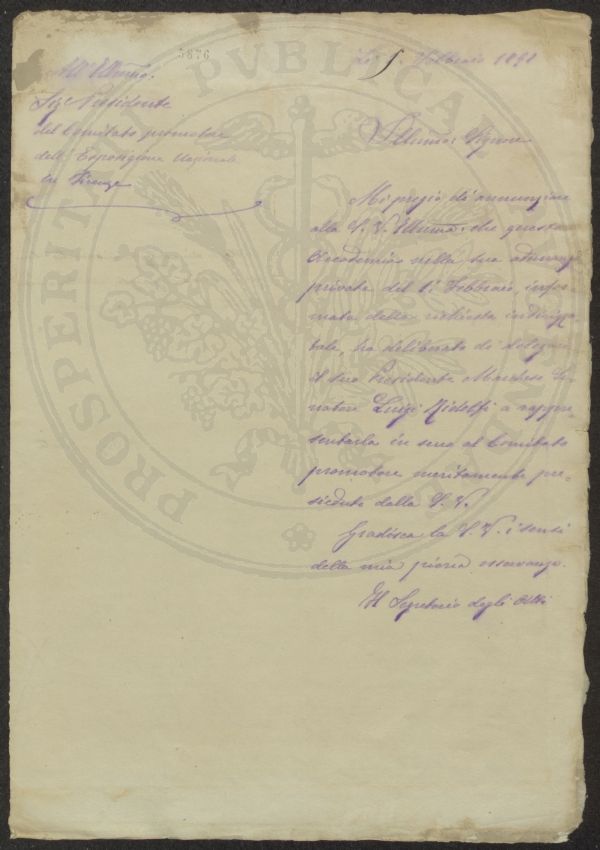 5876
Li 5 Febbraio 1898
All' Illmo.
Sigr Presidente
del Comitato promotore
dell' Esposizione Nazionale
in Firenze
Illmo Signore
Mi pregio di annunziare
alla S. V. Illma che questa
Accademia nella sua adunanza
privata del 1° Febbraio, infor-
mata della richiesta indirizza-
tale, ha deliberato di delegare
il suo Presidente Marchese Se-
natore Luigi Ridolfi a rappre-
sentarla in seno al Comitato
promotore meritamente pre-
sieduto dalla S. V.
Gradisca la S. V. i sensi
della mia osservanza.
Il Segretario degli Atti
PROSPERITATI PVBLICAE